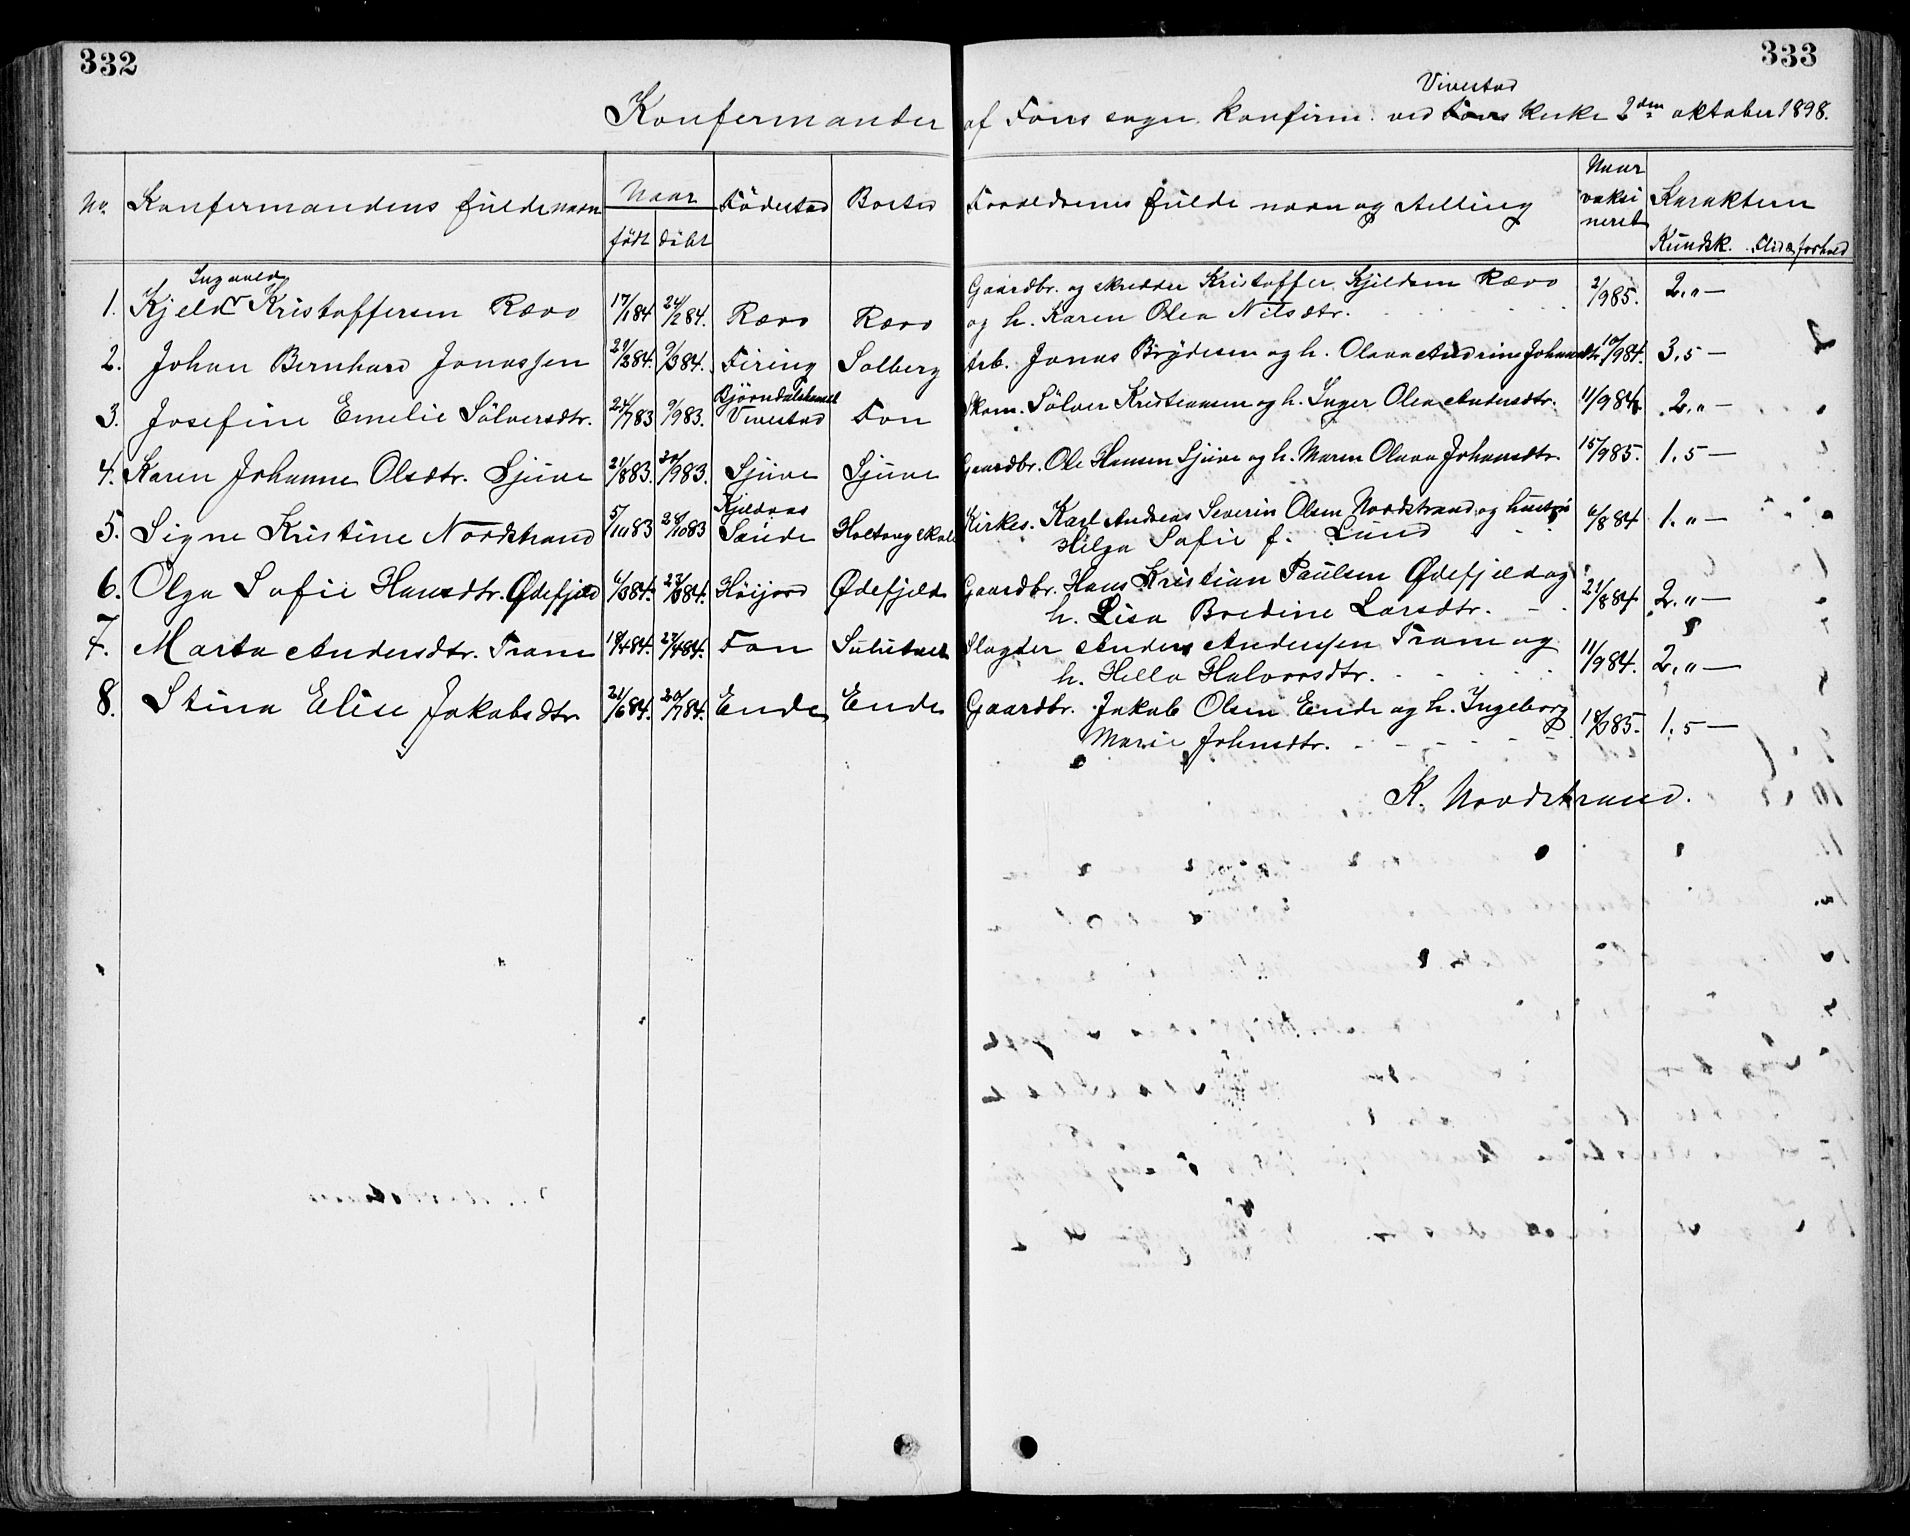 332
333
Konfermander af Fons sogn konfirm. ved Vivestad Fons kirke 2den oktober 1898.
No. Konfermandens fulde navn Naar født døbt Fødested Bosted Forældrenes fulde navn og stilling Naar vaksineret Karakteren Kundsk. Flid & forhold
1. Kjeld Ingvald Kristoffersen Rævo 17/184 24/284. Rævo Rævo Gaardbr. og skrædder Kristoffer Kjeldsen Rævo 2/985. 2." —
og h. Karen Olea Nilsdtr.
2. Johan Bernhard Jonassen 29/284. 9/384. Firing Solberg Arb. Jonas Brydesen og h. Olava Andrine Johansdtr. 10/984. 3,5 —
3. Josefine Emelie Sölversdtr. 24/783 9/983. Bjørndalshamal Vivestad Fon Skom. Sölver Kristensen og h. Inger Olea Andersdtr. 11/984. 2." —
4. Karen Johanne Olsdtr. Sjuve 21/883. 20/983. Sjuve Sjuve Gaardbr. Ole Hansen Sjuve og h. Maren Olava Johansdtr. 15/985. 1.5 —
5. Signe Kristine Nordstrand 5/1083 28/1083 Kjeldaas Sande Holtung skole Kirkes. Karl Andreas Severin Olsen Nordstrand og hustru 6/884 1." —
Hilga Sofie f. Lund
6. Olga Sofie Hansdtr. Ødefjeld 6/384. 23/384. Höijord Ødefjeld Gaardbr. Hans Kristian Paulsen Ødefjeld og 21/884 2." —
h. Lisa Bredine Larsdtr.
7. Marta Andersdtr. Fram 18/484. 27/484. Fon Sulutvet Slagter Anders Andersen Fram og 11/984. 2." —
h. Hella Halvorsdtr.
8. Stina Elise Jakobsdtr. 21/684. 20/784. Ende Ende Gaardbr. Jakob Olsen Ende og h. Ingeborg 18/285. 1.5 —
Marie Johnsdtr.
K. Nordstrand.